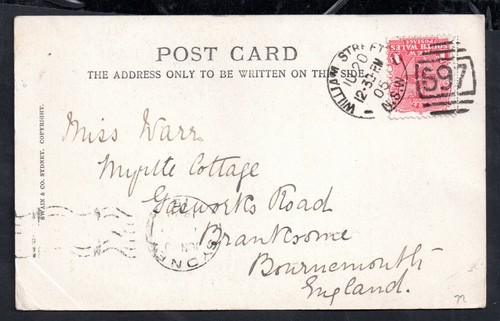 POST CARD
THE ADDRESS ONLY TO BE WRITTEN ON THIS SIDE.
WILLIAM STREET
12.30 PM
05
N.S.W
697
SOUTH WALES
POSTAGE
SWAIN & CO. SYDNEY, COPYRIGHT.
Miss Warr
Myrtle Cottage
Gasworks Road
Branksome
Bournemouth
England.
SYDNEY